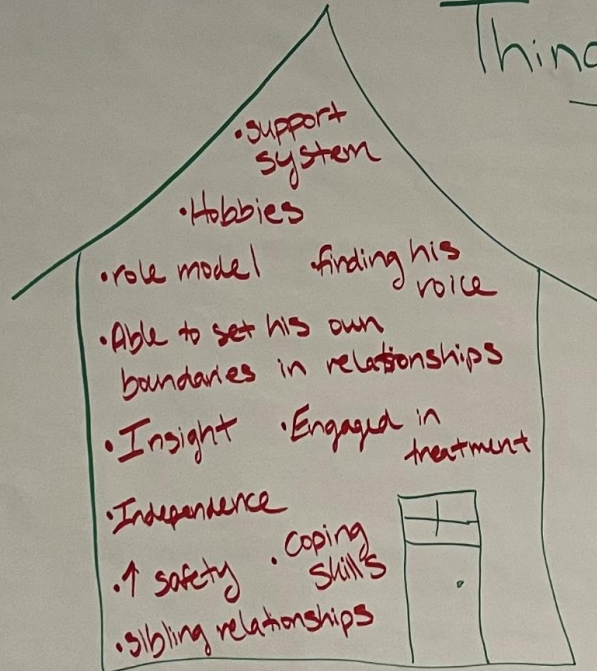 Thing
•support
system
•Hobbies
•role model •finding his
voice
•Able to set his own
boundaries in relationships
•Insight •Engaged in
treatment
•Independence
•↑ safety •Coping
skills
•sibling relationships